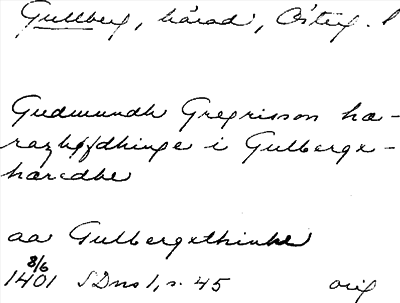 Gullberg, härad, Östg. l
Gudmundh Gregrisson hæ-
razhøfdhinge i Gulbergx-
hæredhe
aa Gulbergxthinhe
8/6
1401 SDns 1, s. 45 orig